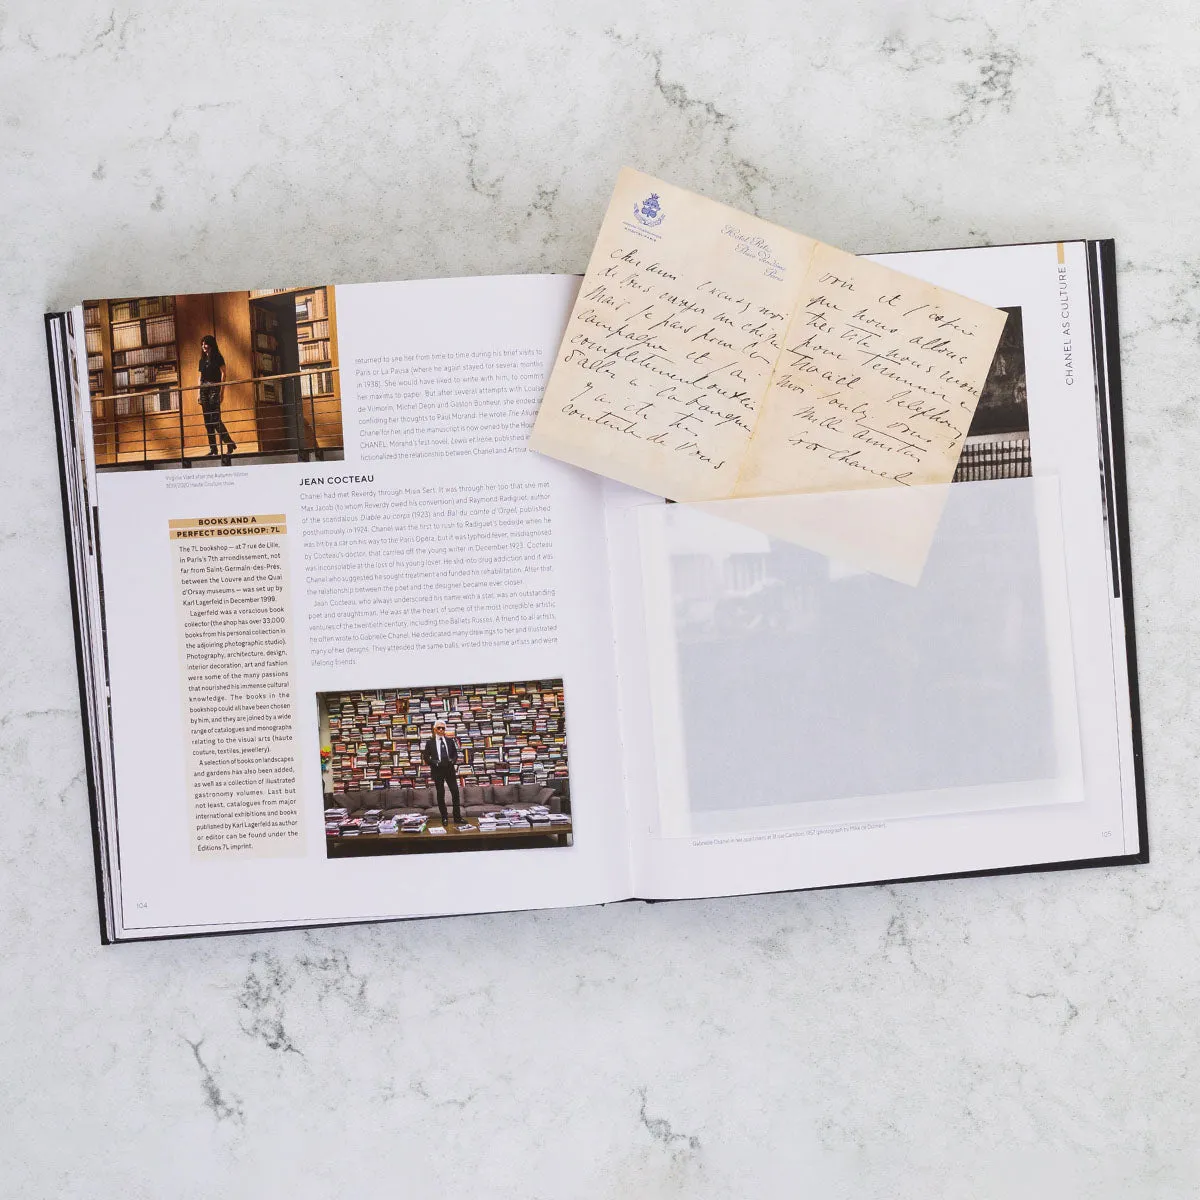 returned to see her from time to time during his brief visits to
Paris or La Pausa (where he again stayed for several months
in 1938). She would have liked to write with him, to commit
her maxims to paper. But after several attempts with Louise
de Vilmorin, Michel Déon and Gaston Bonheur, she ended
confiding her thoughts to Paul Morand. He wrote The Allure
Chanel for her, and the manuscript is now owned by the Hou
CHANEL. Morand's first novel, Lewis et Irène, published in
fictionalized the relationship between Chanel and Arthur
Virginie Viard after the Autumn-Winter
2019/2020 Haute Couture show.
JEAN COCTEAU
Chanel had met Reverdy through Misia Sert. It was through her too that she met
Max Jacob (to whom Reverdy owed his conversion) and Raymond Radiguet, author
of the scandalous Diable au corps (1923) and Bal du comte d'Orgel, published
posthumously in 1924. Chanel was the first to rush to Radiguet's bedside when he
was hit by a car on his way to the Paris Opéra, but it was typhoid fever, misdiagnosed
by Cocteau's doctor, that carried off the young writer in December 1923. Cocteau
was inconsolable at the loss of his young lover. He slid into drug addiction and it was
Chanel who suggested he sought treatment and funded his rehabilitation. After that,
the relationship between the poet and the designer became ever closer.
Jean Cocteau, who always underscored his name with a star, was an outstanding
poet and draughtsman. He was at the heart of some of the most incredible artistic
ventures of the twentieth century, including the Ballets Russes. A friend to all artists,
he often wrote to Gabrielle Chanel. He dedicated many drawings to her and illustrated
many of her designs. They attended the same balls, visited the same artists and were
lifelong friends.
BOOKS AND A
PERFECT BOOKSHOP: 7L
The 7L bookshop — at 7 rue de Lille,
in Paris's 7th arrondissement, not
far from Saint-Germain-des-Prés,
between the Louvre and the Quai
d'Orsay museums — was set up by
Karl Lagerfeld in December 1999.
Lagerfeld was a voracious book
collector (the shop has over 33,000
books from his personal collection in
the adjoining photographic studio).
Photography, architecture, design,
interior decoration, art and fashion
were some of the many passions
that nourished his immense cultural
knowledge. The books in the
bookshop could all have been chosen
by him, and they are joined by a wide
range of catalogues and monographs
relating to the visual arts (haute
couture, textiles, jewellery).
A selection of books on landscapes
and gardens has also been added,
as well as a collection of illustrated
gastronomy volumes. Last but
not least, catalogues from major
international exhibitions and books
published by Karl Lagerfeld as author
or editor can be found under the
Éditions 7L imprint.
104
Hôtel Ritz
Place Vendôme
Paris
Cher ami excusez moi
de vous envoyer un chèque
Mais je pars pour la
campagne et j'ai
complètement oublié
d'aller à la banque
Chanel
CHANEL AS CULTURE
Gabrielle Chanel in her apartment at 31 rue Cambon, 1937 (photograph by
105